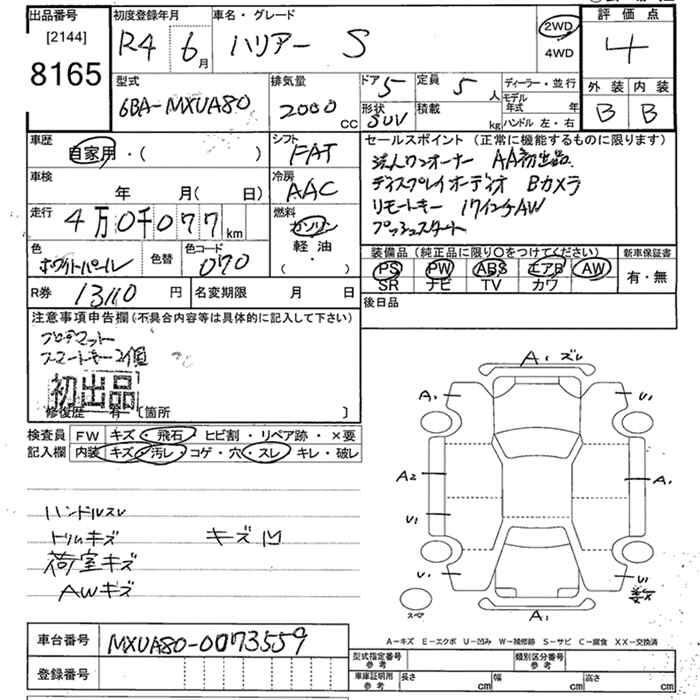 出品番号
[2144]
8165
初度登録年月
R4 6月
車名・グレード
ハリアー S
2WD
4WD
評価点
4
外装 内装
B B
型式
6BA-MXUA80
排気量
2000 CC
ドア 5
形状 SUV
定員 5 人
積載 kg
ディーラー・並行
モデル年式 年
ハンドル 左・右
車歴
自家用・( )
シフト
FAT
セールスポイント (正常に機能するものに限ります)
法人ワンオーナー AA初出品
ディスプレイオーディオ Bカメラ
リモートキー 17インチAW
プッシュスタート
車検
年 月( 日)
冷房
AAC
走行
4万0千077km
燃料
ガソリン
軽油
( ・ )
色
ホワイトパール
色替
色コード
070
装備品 (純正品に限り○をつけてください)
新車保証書
PS PW ABS エアB AW
SR ナビ TV カワ
有・無
R券 13110 円
名変期限 月 日
後日品
注意事項申告欄 (不具合内容等は具体的に記入して下さい)
フロアマット
スマートキー2個
初出品
修復歴 有 [箇所 ]
検査員
記入欄
FW キズ・飛石・ヒビ割・リペア跡・×要
内装 キズ・汚レ・コゲ・穴・スレ・キレ・破レ
ハンドルスレ
トリムキズ キズ凹
荷室キズ
AWキズ
A1 ズレ
A1 U1
A2 A1
U1
U1 U1
スペ
A1
A-キズ E-エクボ U-凹み W-補修跡 S-サビ C-腐食 XX-交換済
車台番号
MXUA80-0073559
登録番号
型式指定番号 参考
類別区分番号 参考
車庫証明用 参考
長さ cm 幅 cm 高さ cm